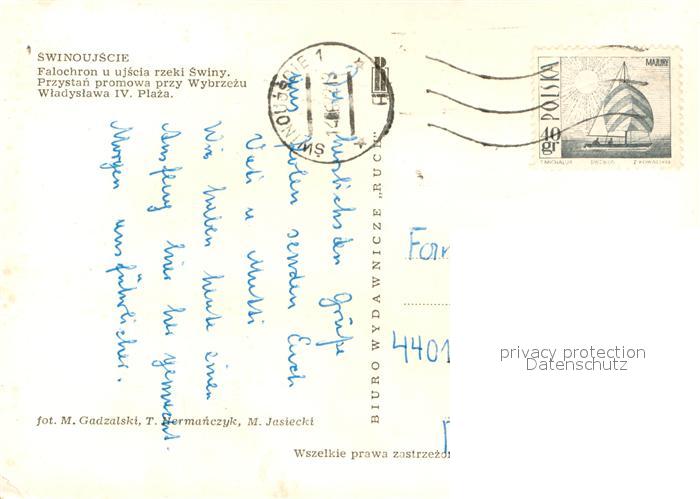 ŚWINOUJŚCIE
Falochron u ujścia rzeki Świny.
Przystań promowa przy Wybrzeżu
Władysława IV. Plaża.
ŚWINOUJŚCIE 1
POLSKA
MAZURY
40 gr
T. MICHALUK
Z. KOWALSKI
herzlichsten Grüße
aus Polen senden Euch
Vati u Mutti
Wir haben heute einen
Ausflug hier her gemacht.
Morgen ausführlicher.
BIURO WYDAWNICZE „RUCH"
4401
privacy protection
Datenschutz
fot. M. Gadzalski, T. Hermańczyk, M. Jasiecki
Wszelkie prawa zastrzeżo